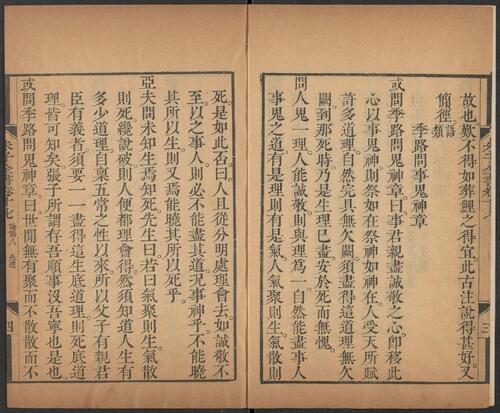 故也歎不得如葬鯉之得宜此古注說得甚好又
簡徑語類
季路問事鬼神章
或問季路問鬼神章曰事君親盡誠敬之心卽移此
心以事鬼神則祭如在祭神如神在人受天所賦
許多道理自然完具無欠闕須盡得這道理無欠
闕到那死時乃是生理已盡安於死而無愧
問人鬼一理人能誠敬則與理爲一自然能盡事人
事鬼之道有是理則有是氣人氣聚則生氣散則
死是如此否曰人且從分明處理會去如誠敬不
至以之事人則必不能盡其道况事神乎不能曉
其所以生則又焉能曉其所以死乎
亞夫問未知生焉知死先生曰若曰氣聚則生氣散
則死纔說破則人便都理會得然須知道人生有
多少道理自稟五常之性以來所以父子有親君
臣有義者須要一一盡得這生底道理則死底道
理皆可知矣張子所謂存吾順事沒吾寧也是也
或問季路問鬼神章曰世間無有聚而不散散而不
三
朱子全書卷十七 論語八 先進
四